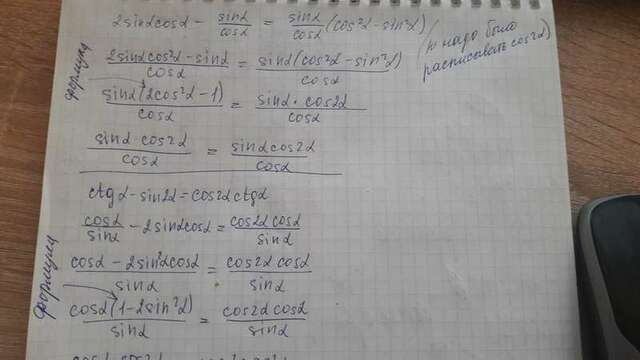 2sinαcosα - sinα/cosα = sinα/cosα (cos²α - sin²α)
(не надо было расписывать cos2α)
формула
2sinαcos²α - sinα/cosα = sinα(cos²α - sin²α)/cosα
sinα(2cos²α - 1)/cosα = sinα · cos2α/cosα
sinα · cos2α/cosα = sinαcos2α/cosα
ctgα - sin2α = cos2αctgα
cosα/sinα - 2sinαcosα = cos2α cosα/sinα
формула
cosα - 2sin²αcosα/sinα = cos2α cosα/sinα
cosα(1 - 2sin²α)/sinα = cos2α cosα/sinα